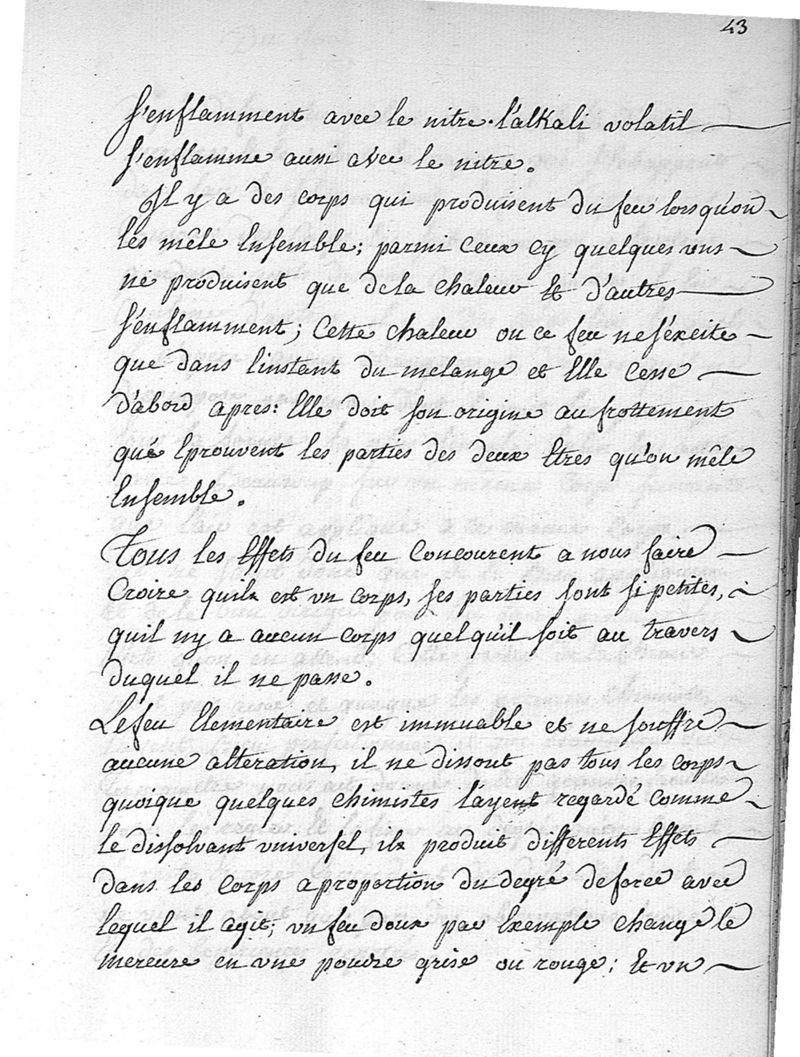 43
s'enflamment avec le nitre. l'alkali volatil
s'enflamme aussi avec le nitre.
Il y a des corps qui produisent du feu lorsqu'on
les mêle Ensemble; parmi Ceux Cy quelques uns
ne produisent que de la Chaleur et d'autres
s'enflamment; Cette Chaleur ou ce feu ne s'éxcite
que dans l'instant du melange et Elle Cesse
d'abord apres: Elle doit son origine au frottement
qué Eprouvent les parties des deux Etres qu'on mêle
Ensemble.
Tous les Effets du feu Concourent a nous faire
Croire quil est un Corps, ses parties sont si petites,
quil ny a aucun Corps quelqu'il soit au travers
duquel il ne passe.
Le feu Elementaire est immuable et ne souffre
aucune alteration, il ne dissout pas tous les Corps
quoique quelques Chimistes l'ayent regardé Comme
le dissolvant universel, il produit differents Effets
dans les Corps a proportion du degré de force avec
lequel il agit; un feu doux par Exemple Change le
mercure en une poudre grise ou rouge; Et un